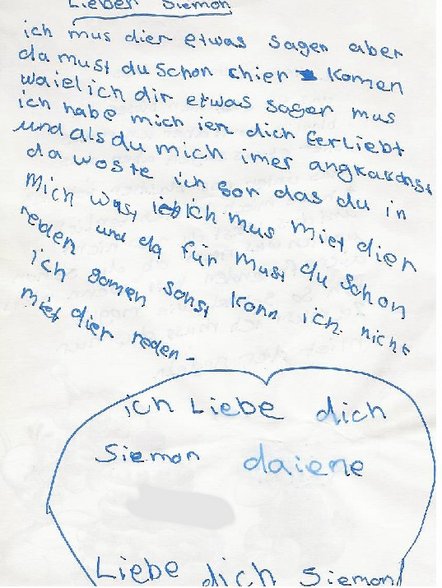 Lieber Siemon
ich mus dier etwas sagen aber
da must du schon chier komen
waielich dir etwas sagen mus
ich habe mich ien dich ferliebt
und als du mich imer angkakchst
da woste ich son das du in
mich wast ich mus miet dier
reden und da für must du schon
ich gomen sonst kann ich nicht
miet dier reden-
ich Liebe dich
Siemon daiene
Liebe dich Siemon